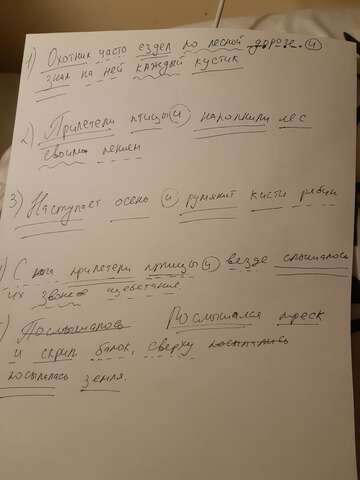 1) Охотник часто ездел по лесной дороге. и
знал на ней каждый кустик
2) Прилетели птицы и наполнили лес
своим пением
3) Наступает осень и румянит кисти рябин
С юга прилетели птицы и везде слышалось
их звонкое щебетание
Послышалось Послышался треск
и скрип балок, сверху посыпалась
посыпалась земля.